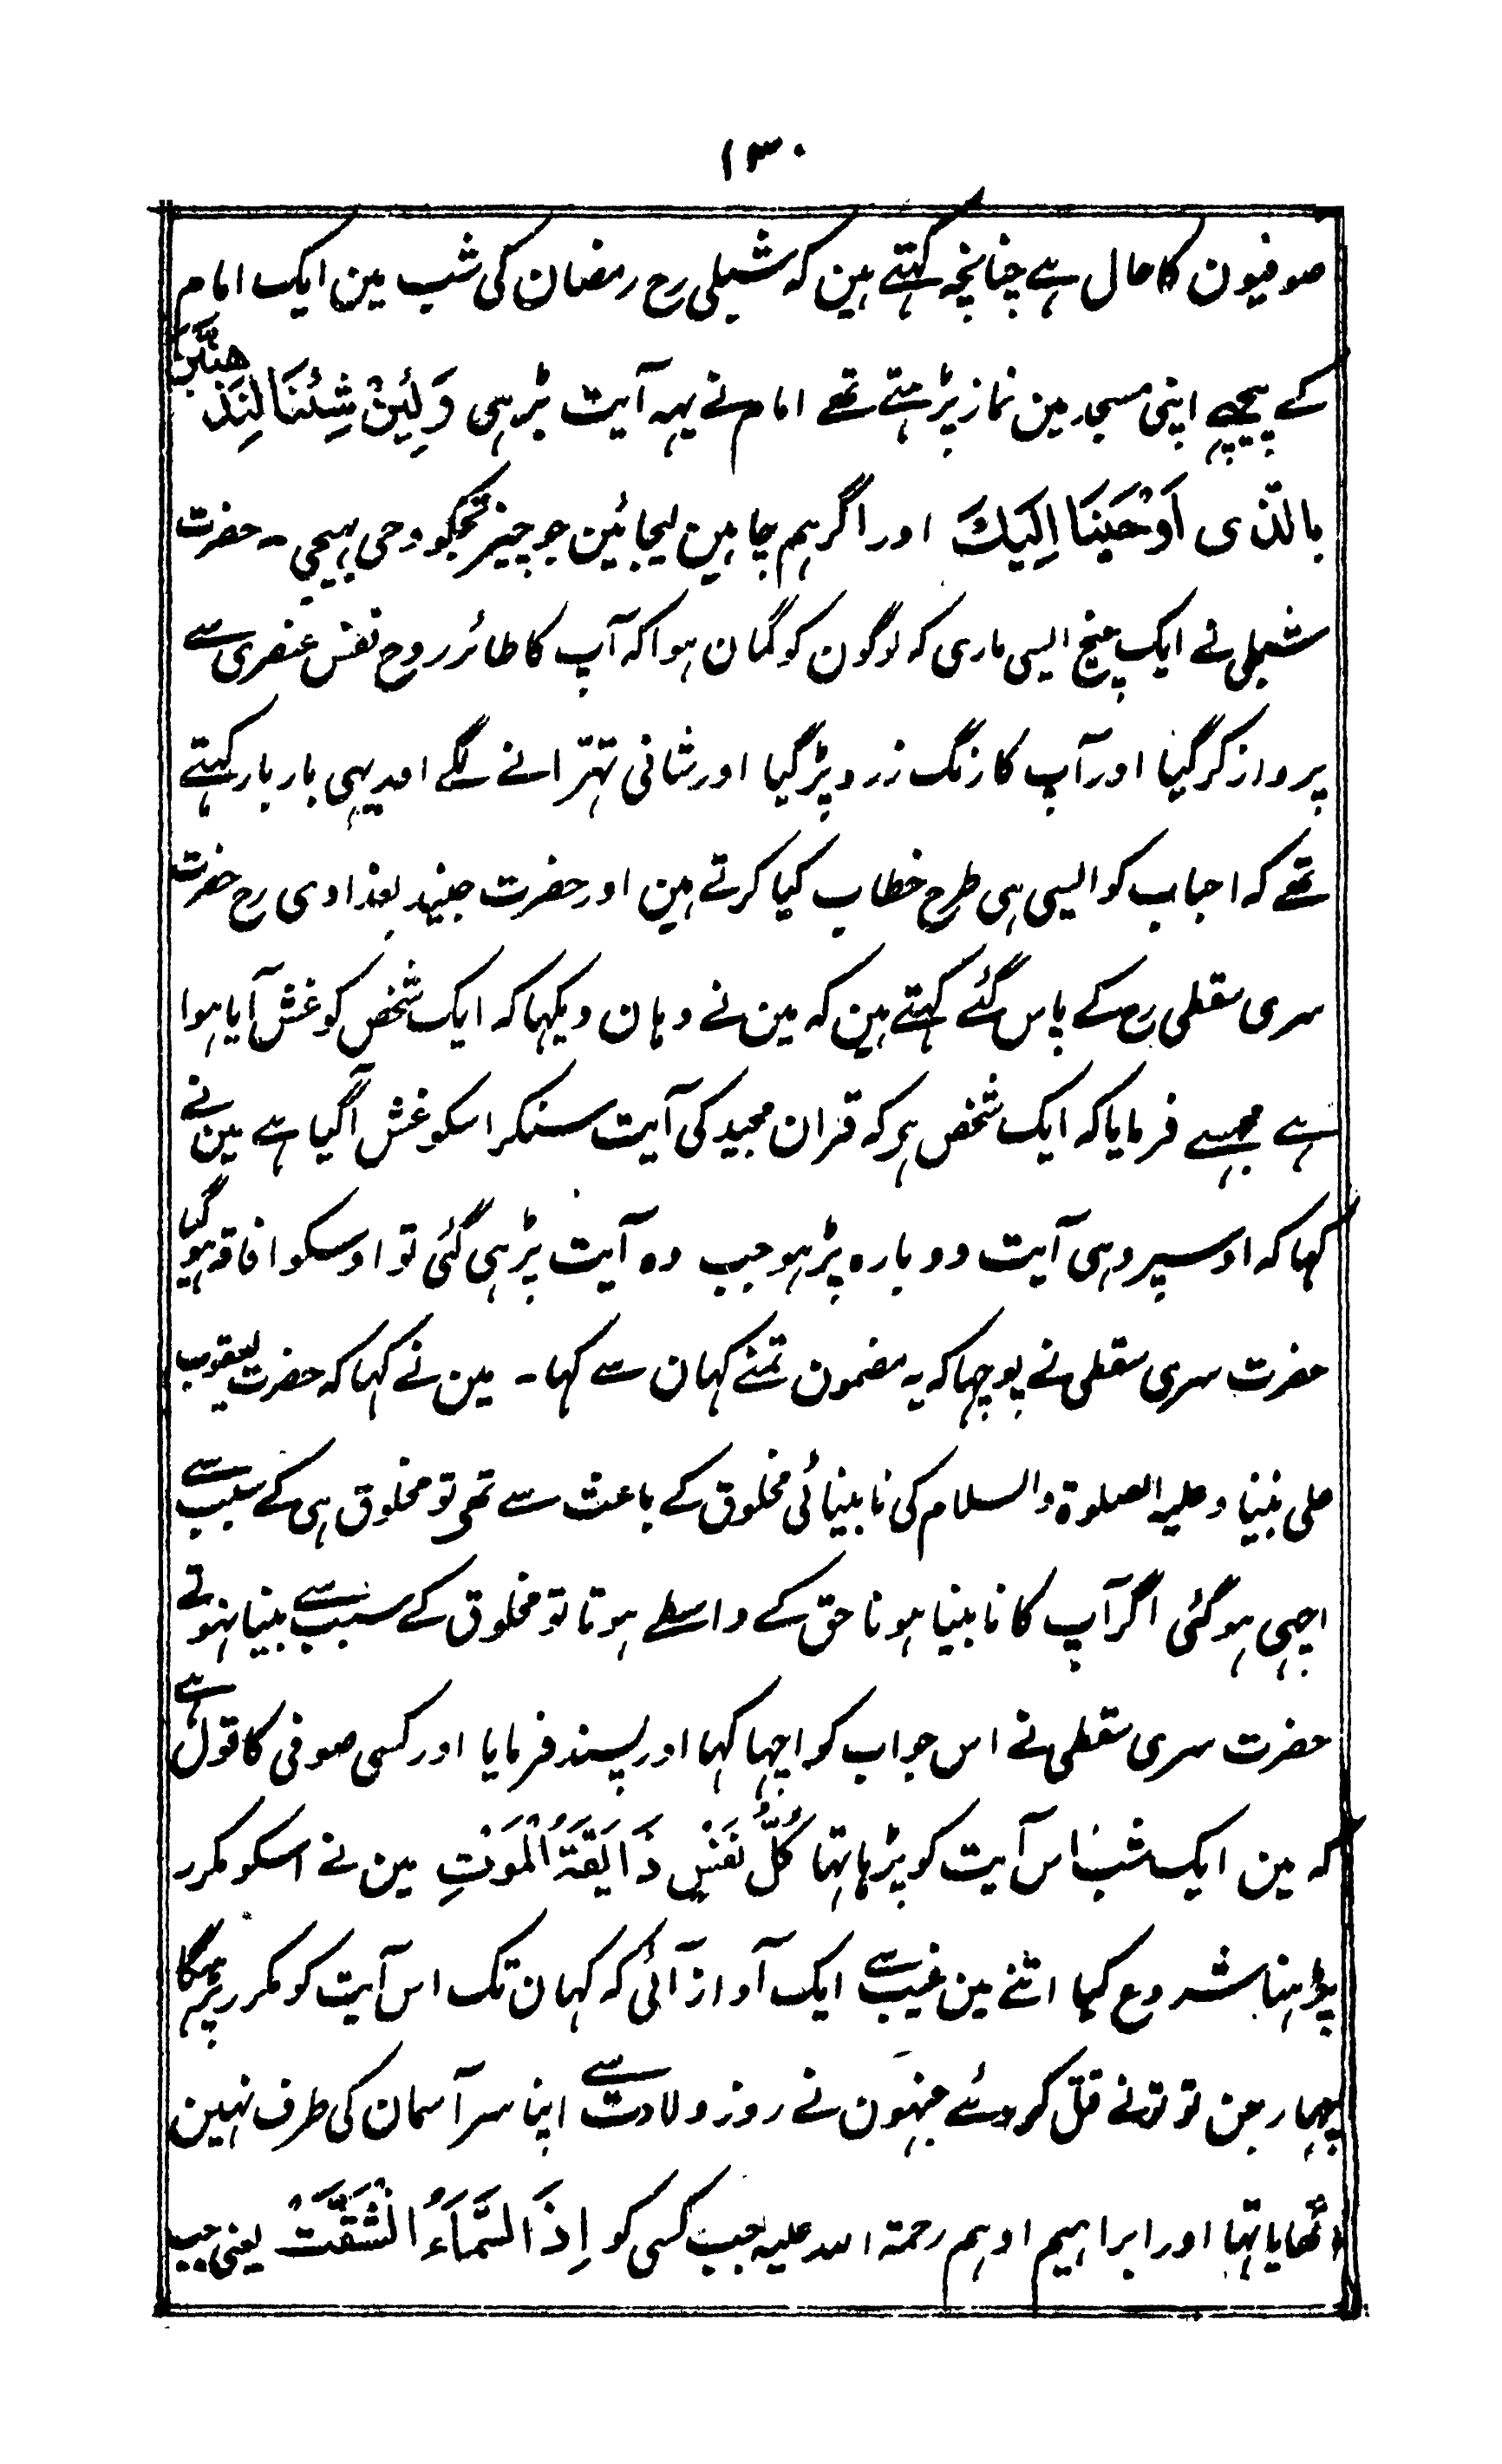 ۱۳۰
صوفیون کا حال ہے چنانچہ کہتے ہین کہ شبلی رح رمضان کی شب مین ایک امام
کے پیچھے اپنی مسجد مین نماز پڑہتے تھے امام نے یہہ آیت پڑہی وَلَئِنْ شِئْنَا لَنَذْهَبَنَّ
بالّذی اَوْحَیْنَا اِلَیْكَ اور اگر ہم چاہین لیجائین جو چیز تجکو وحی بہیجی ۔ حضرت
شبلی نے ایک چیخ ایسی ماری کہ لوگون کو گمان ہوا کہ آپ کا طائر روح نفس عنصری سے
پرواز کر گیا اور آپ کا رنگ زرد پڑ گیا اور شانی تہرّانے لگے اور یہی بار بار کہتے
تھے کہ احباب کو ایسی ہی طرح خطاب کیا کرتے ہین اور حضرت جنید بغدادی رح حضرت
سری سقطی رح کے پاس گئے کہتے ہین کہ مین نے وہان دیکہا کہ ایک شخص کو غش آیا ہوا
ہے مجہسے فرمایا کہ ایک شخص ہی کہ قران مجید کی آیت سنکر اسکو غش آگیا ہے مین نے
کہا کہ اوسپر وہی آیت دوبارہ پڑہو جب وہ آیت پڑہی گئی تو اوسکو افاقہ ہوگیا
حضرت سری سقطی نے پوچہا کہ یہ مضمون تمنے کہان سے کہا ۔ مین نے کہا کہ حضرت یعقوب
علی نبینا وعلیہ الصلوۃ والسلام کی نابینائی مخلوق کے باعث سے تھی تو مخلوق ہی کے سبب سے
اچہی ہو گئی اگر آپ کا نابینا ہونا حق کے واسطے ہوتا تو مخلوق کے سبب سے بینا نہوتے
حضرت سری سقطی نے اس جواب کو اچہا کہا اور پسند فرمایا اور کسی صوفی کا قول ہے
کہ مین ایک شب اس آیت کو پڑہا تہا کُلُّ نَفْسٍ ذَایِقَةُ الْمَوْتِ مین نے اسکو مکرر
پڑہنا شروع کیا اتنے مین غیب سے ایک آواز آئی کہ کہان تک اس آیت کو مکرر پڑہیگا
چہار جن تو تونے قتل کردئے جنہون نے روز ولادت سے اپنا سر آسمان کی طرف نہین
اٹھایا تہا اور ابراہیم ادہم رحمۃ اللہ علیہ جب کسی کو اِذَا السَّمَاءُ انْشَقَّتْ یعنی جب